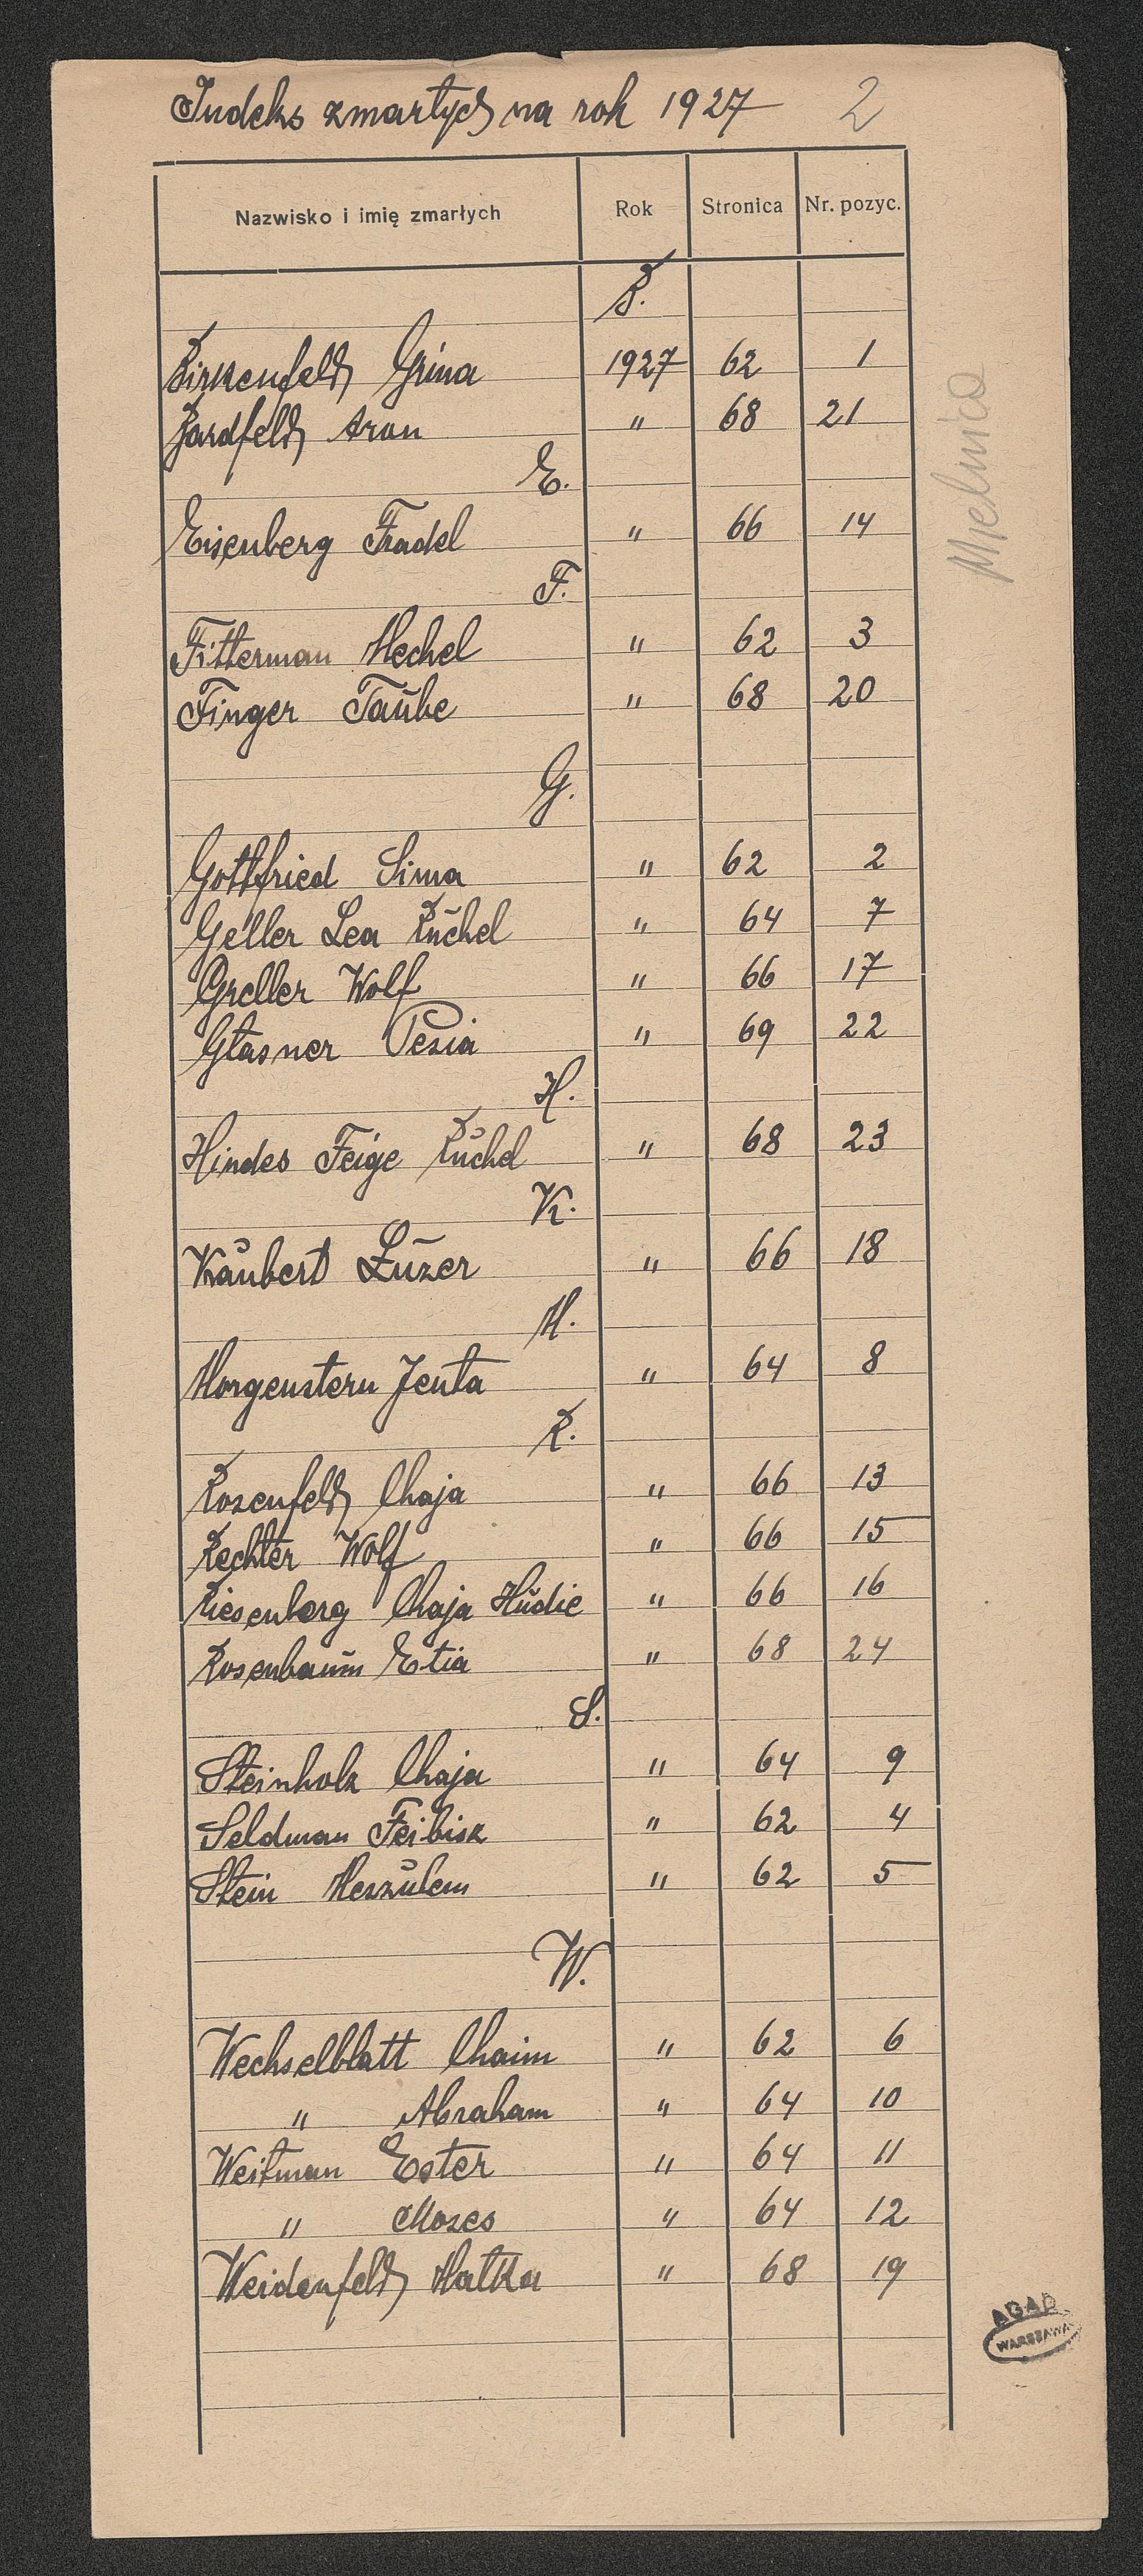 Indeks zmarłych na rok 1927 2
Nazwisko i imię zmarłych Rok Stronica Nr. pozyc.
B.
Birkenfeld Grina 1927 62 1
Bardfeld Aron " 68 21
E.
Eisenberg Fradel " 66 14
F.
Fitterman Mechel " 62 3
Finger Taŭbe " 68 20
G.
Gottfried Sima " 62 2
Geller Lea Rŭchel " 64 7
Greller Wolf " 66 17
Glasner Pesia " 69 22
H.
Hindes Feige Rŭchel " 68 23
K.
Kaŭbert Lŭzer " 66 18
M.
Morgenstern Jenta " 64 8
R.
Rosenfeld Chaja " 66 13
Rechter Wolf " 66 15
Riesenberg Chaja Hŭdie " 66 16
Rosenbaŭm Etia " 68 24
S.
Steinholz Chaja " 64 9
Seldman Feibisz " 62 4
Stein Meszŭlem " 62 5
W.
Wechselblatt Chaim " 62 6
" Abraham " 64 10
Weitman Ester " 64 11
" Mozes " 64 12
Weidenfeld Matka " 68 19
Mielnica
AGAD
WARSZAWA